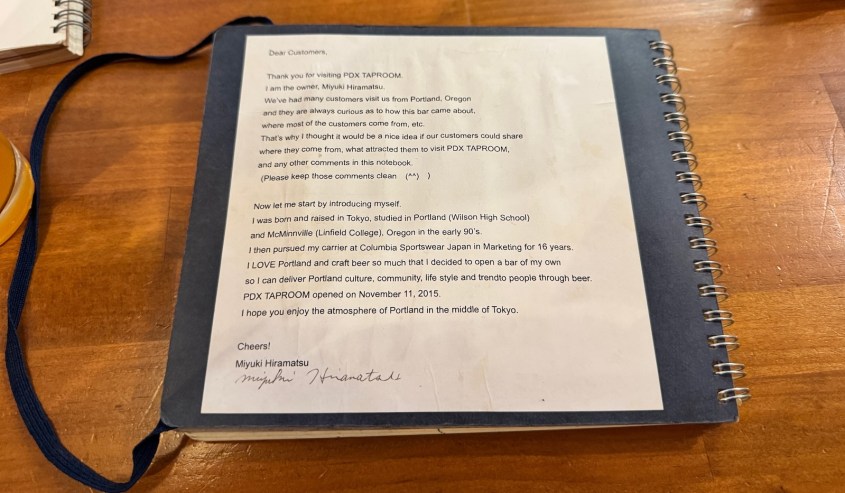 Dear Customers,
Thank you for visiting PDX TAPROOM.
I am the owner, Miyuki Hiramatsu.
We've had many customers visit us from Portland, Oregon
and they are always curious as to how this bar came about,
where most of the customers come from, etc.
That's why I thought it would be a nice idea if our customers could share
where they come from, what attracted them to visit PDX TAPROOM,
and any other comments in this notebook.
(Please keep those comments clean (^^) )
Now let me start by introducing myself.
I was born and raised in Tokyo, studied in Portland (Wilson High School)
and McMinnville (Linfield College), Oregon in the early 90's.
I then pursued my carrier at Columbia Sportswear Japan in Marketing for 16 years.
I LOVE Portland and craft beer so much that I decided to open a bar of my own
so I can deliver Portland culture, community, life style and trendto people through beer.
PDX TAPROOM opened on November 11, 2015.
I hope you enjoy the atmosphere of Portland in the middle of Tokyo.
Cheers!
Miyuki Hiramatsu
Miyuki Hiramatsu